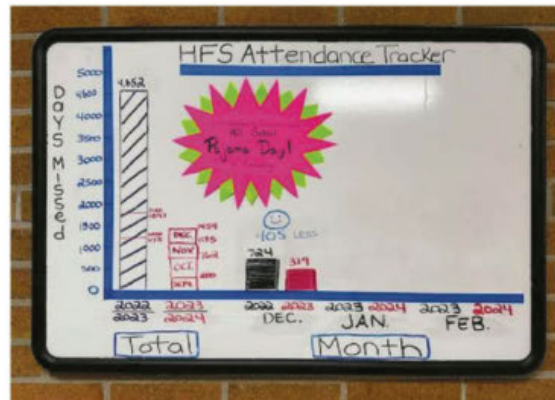 HFS Attendance Tracker
Days Missed
5000
4500
4000
3500
3000
2500
2000
1500
1000
500
0
4,652
DEC
NOV
OCT
Pajama Day!
405 LESS
724
319
2022
2023
2023
2024
2022
2023
2023
2024
2023
2024
DEC.
JAN.
FEB.
Total
Month